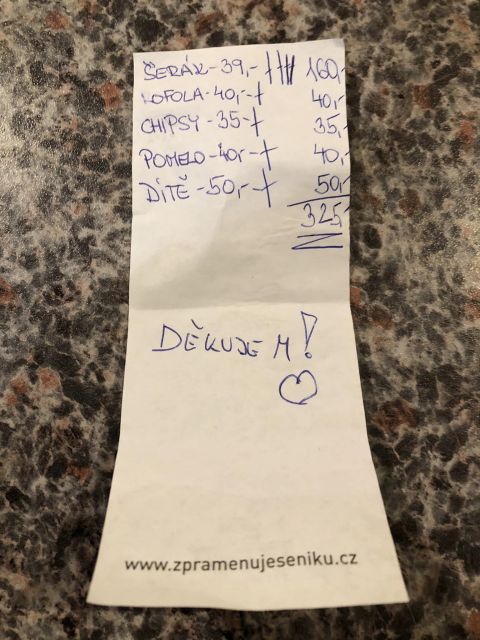 ŠERÁK - 39,- //// 160,-
KOFOLA - 40,- / 40,-
CHIPSY - 35 - / 35,-
POMELO - 40,- / 40,-
DÍTĚ - 50,- / 50,-
325,
DĚKUJEM! ♡
www.zpramenujeseniku.cz